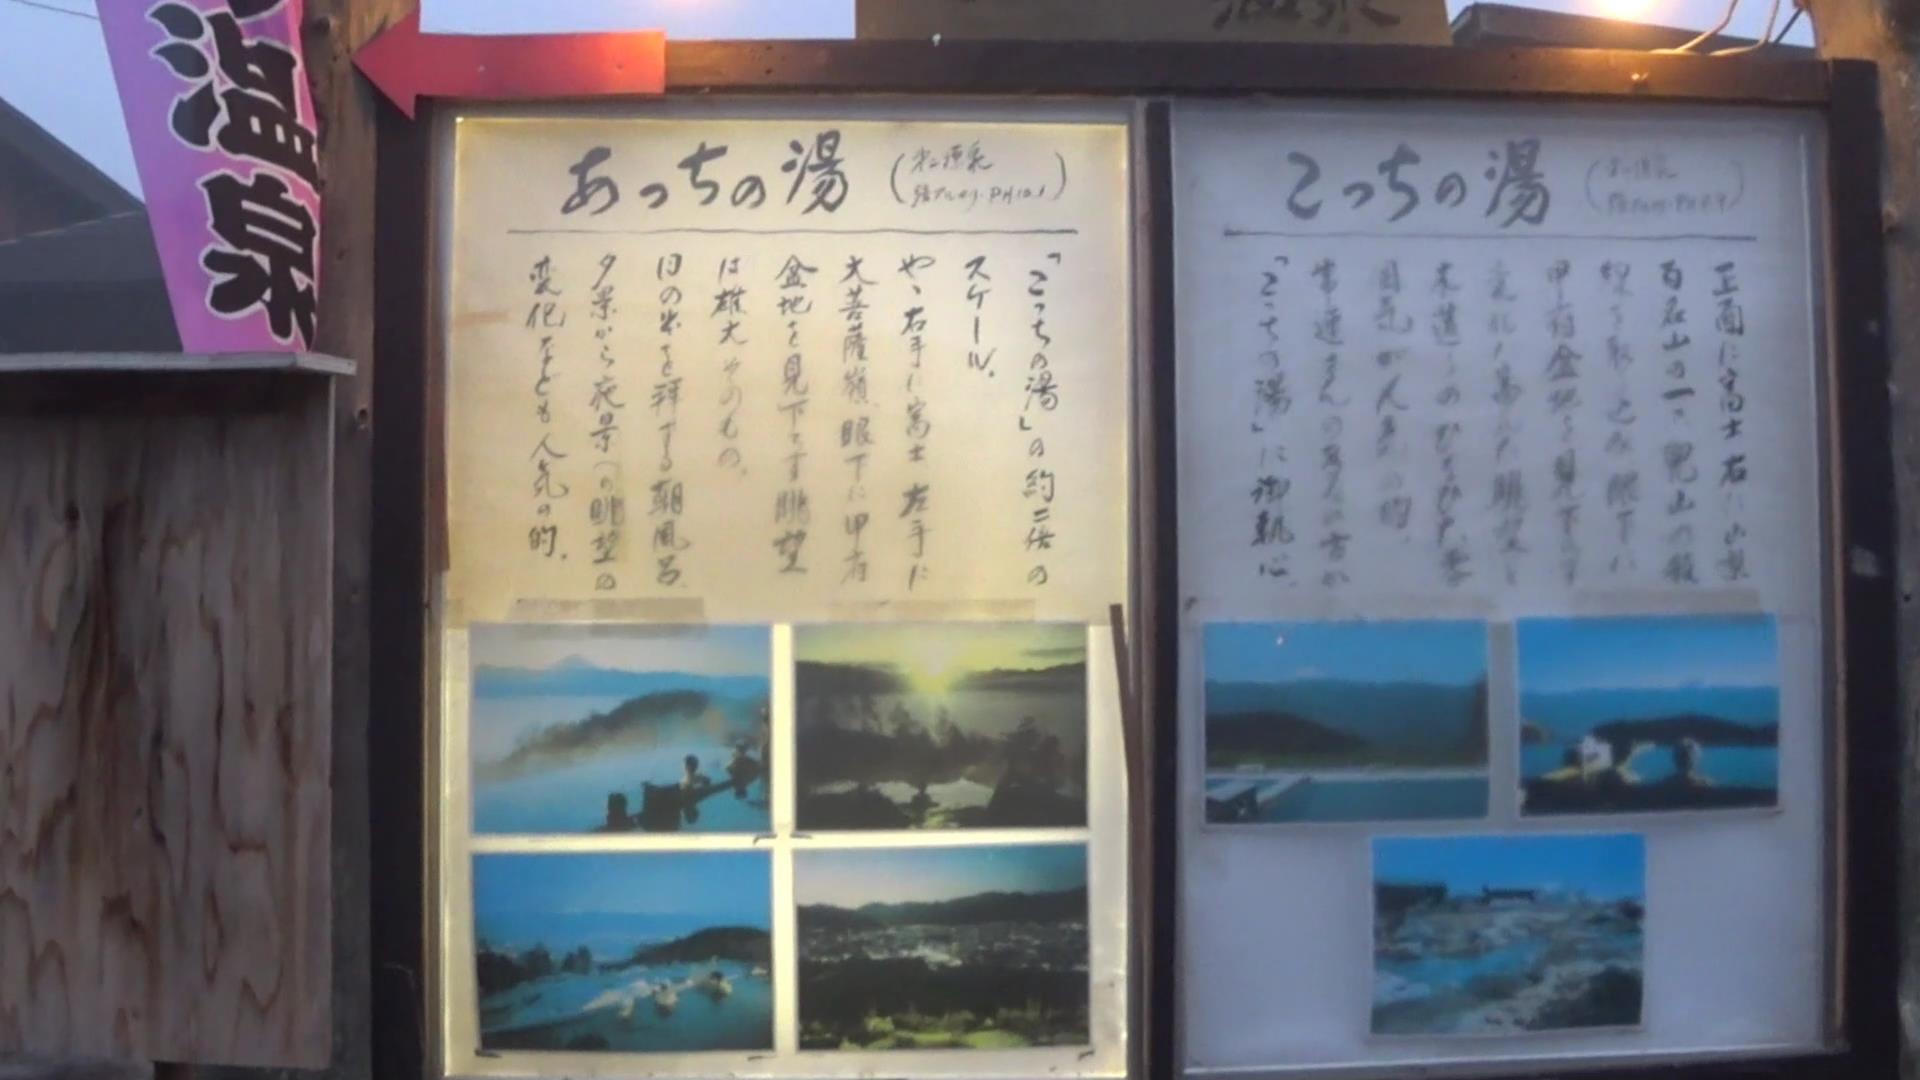 温泉
温泉
あっちの湯
(第二源泉
強アルカリ・PH10.1)
「こっちの湯」の約二倍の
スケール。
やゝ右手に富士 左手に
大菩薩嶺、眼下に甲府
盆地を見下ろす眺望
は雄大そのもの。
日の出を拝する朝風呂、
夕景から夜景への眺望の
変化なども人気の的。
こっちの湯
正面に富士 右に山梨
百名山の一つ兜山の
眼下に
甲府盆地を見下ろす
眺望と
が人気の的。
常連さんの
「こっちの湯」に御執心。